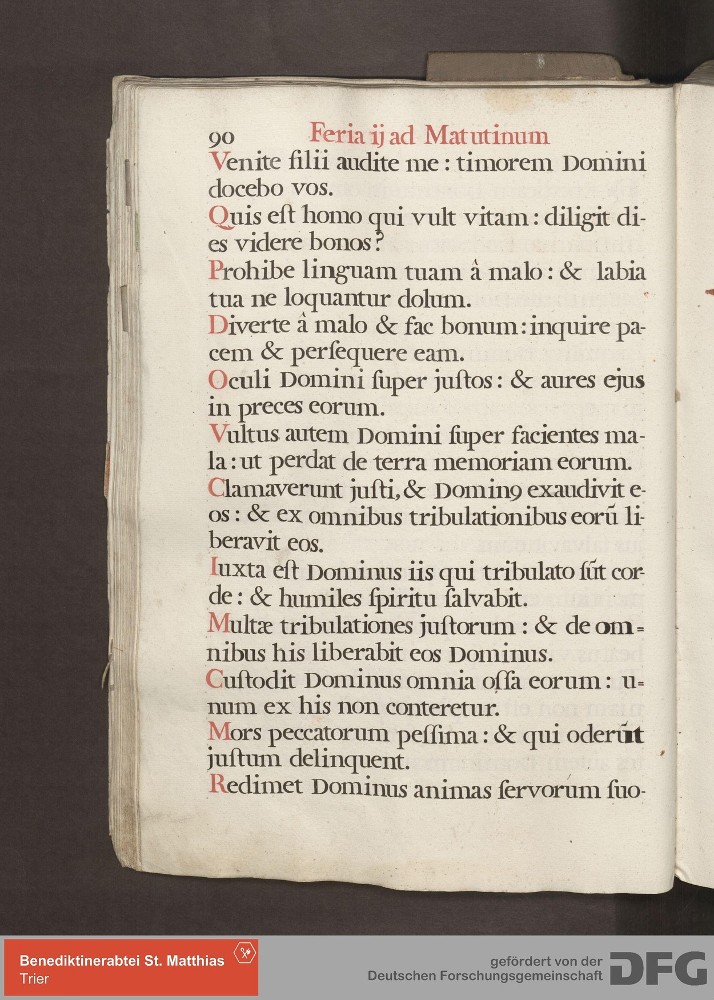 90 Feria ij ad Matutinum
Venite filii audite me : timorem Domini
docebo vos.
Quis eſt homo qui vult vitam : diligit di-
es videre bonos?
Prohibe linguam tuam â malo : & labia
tua ne loquantur dolum.
Diverte â malo & fac bonum : inquire pa-
cem & perſequere eam.
Oculi Domini ſuper juſtos : & aures ejus
in preces eorum.
Vultus autem Domini ſuper facientes ma-
la : ut perdat de terra memoriam eorum.
Clamaverunt juſti, & Domin9 exaudivit e-
os : & ex omnibus tribulationibus eorū li-
beravit eos.
Iuxta eſt Dominus iis qui tribulato ſūt cor-
de : & humiles ſpiritu ſalvabit.
Multæ tribulationes juſtorum : & de om=
nibus his liberabit eos Dominus.
Cuſtodit Dominus omnia oſſa eorum : u=
num ex his non conteretur.
Mors peccatorum peſſima : & qui oderūt
juſtum delinquent.
Redimet Dominus animas ſervorum ſuo-
Benediktinerabtei St. Matthias
Trier
gefördert von der
Deutschen Forschungsgemeinschaft
DFG